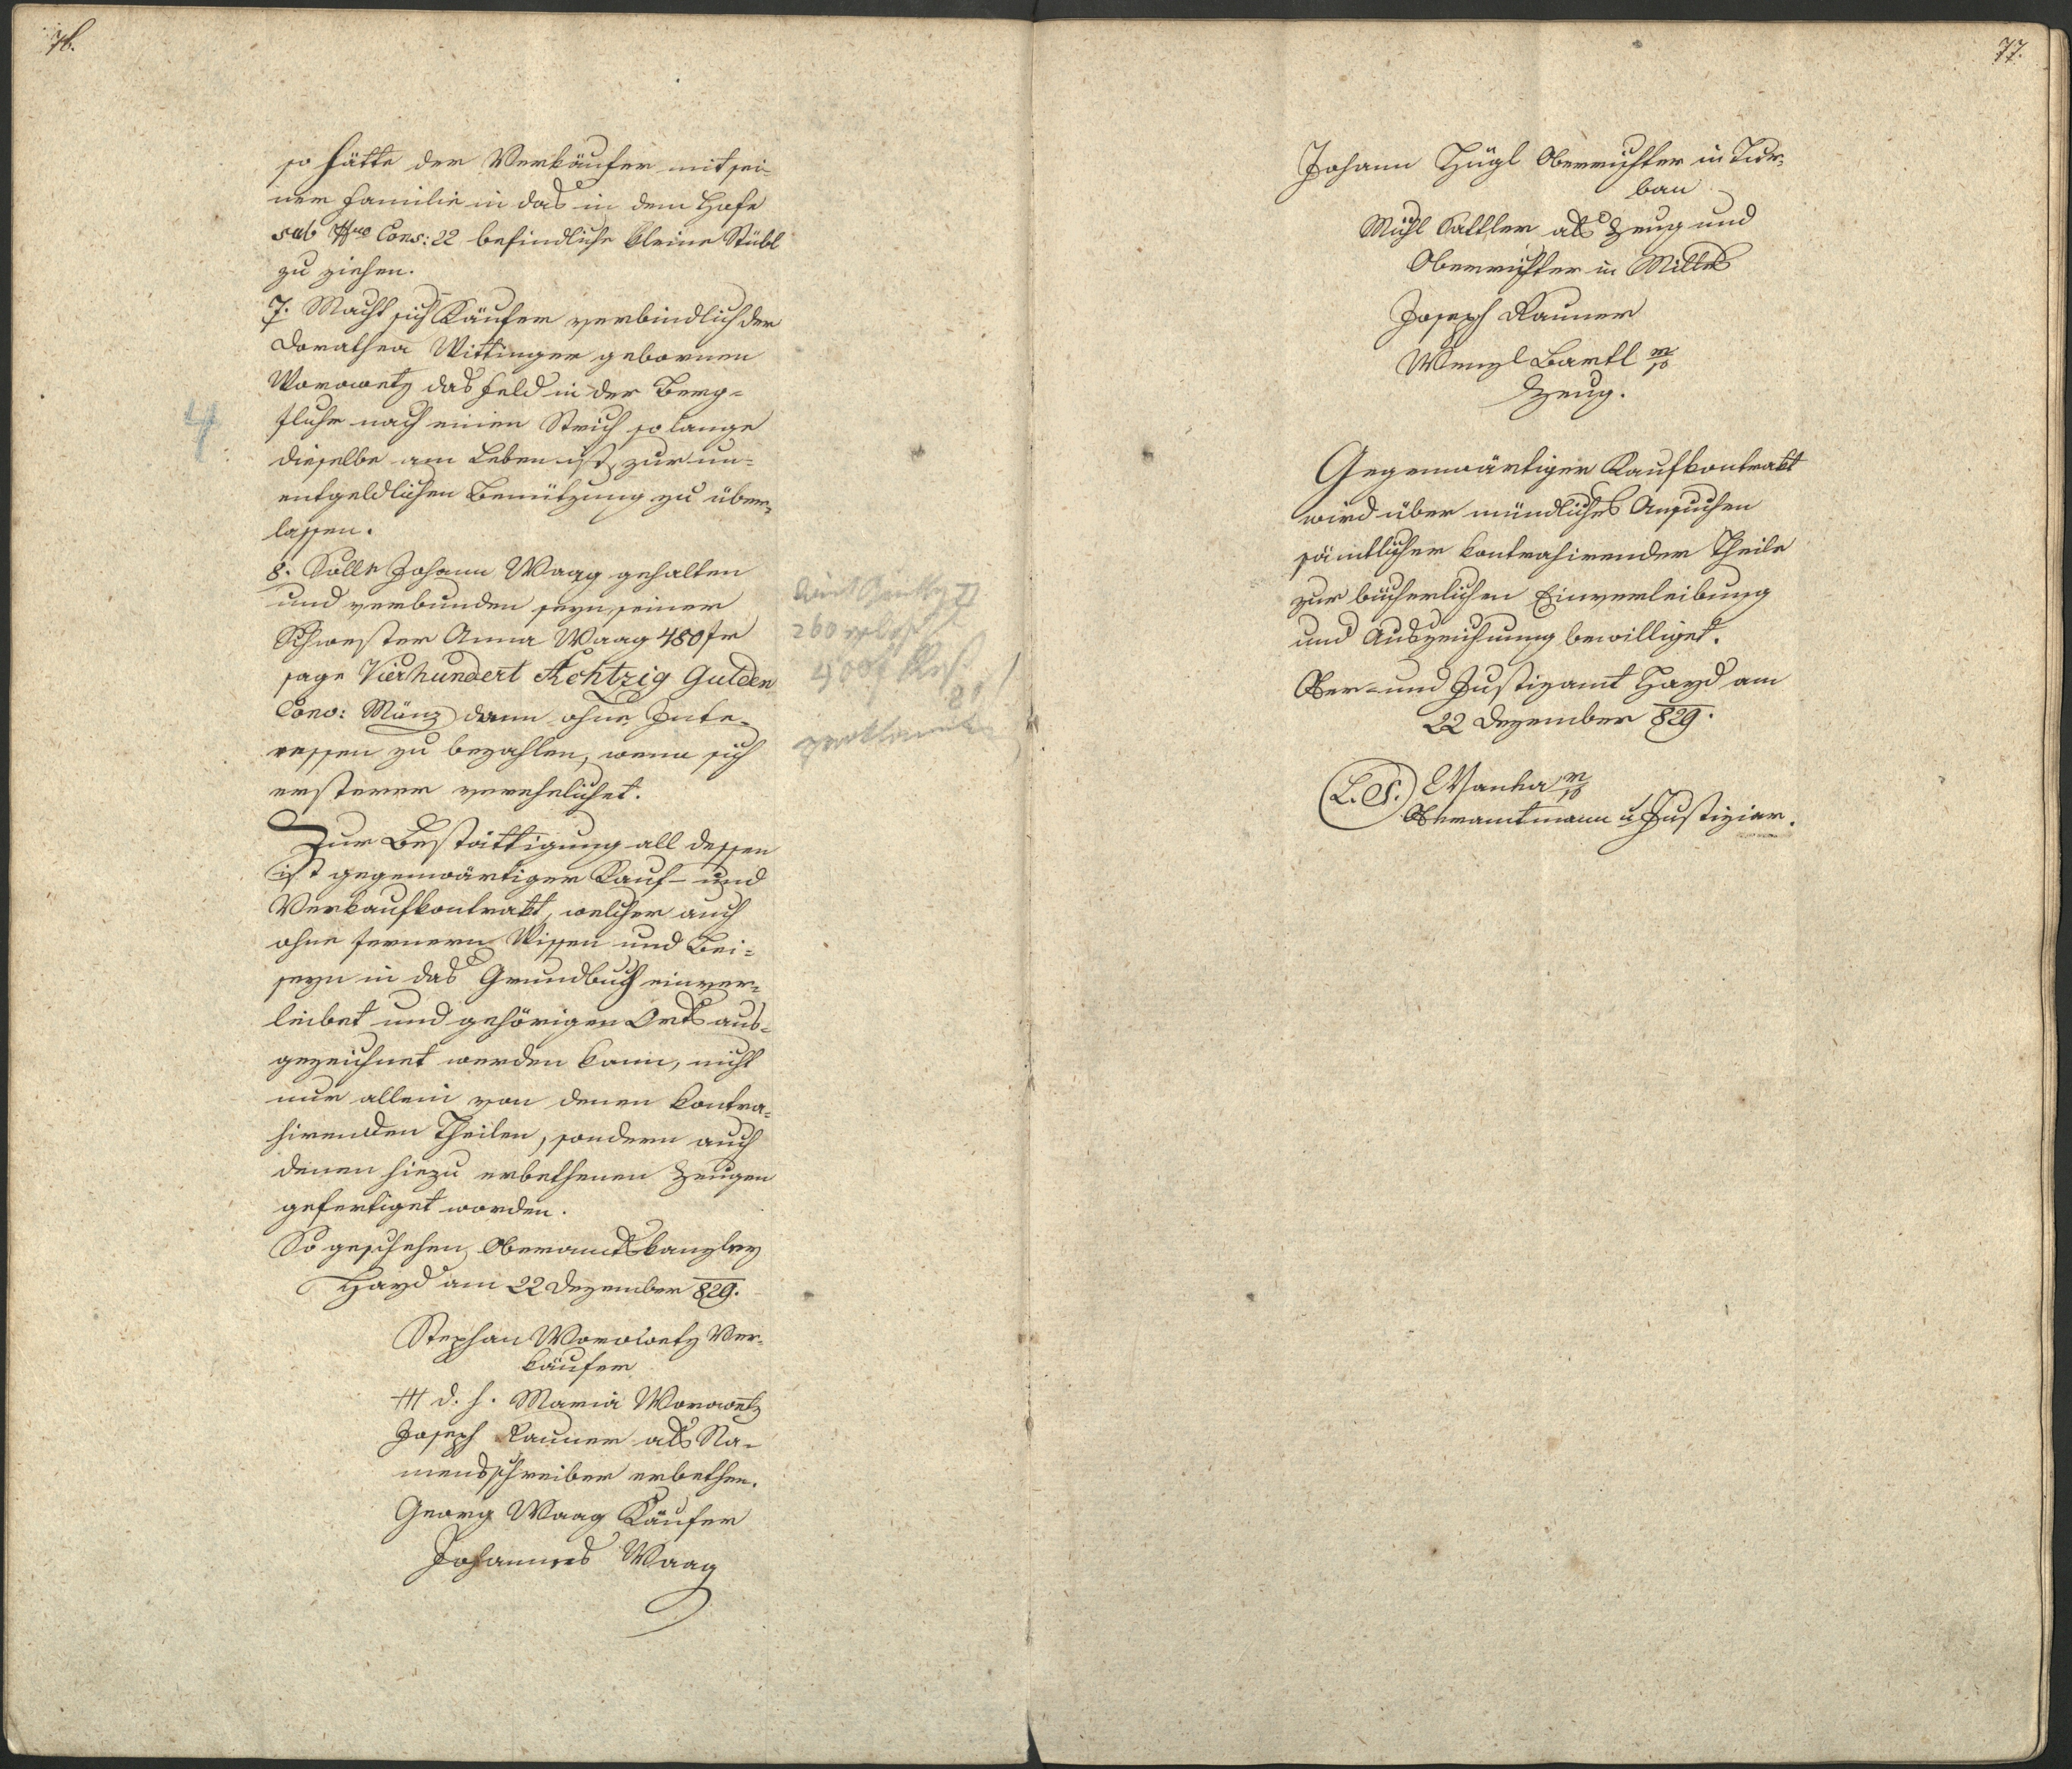 76.
so hätte der Verkäufer mit sei-
ner Familie in das in dem Hofe
sub Nro Cons: 22 befindliche kleine Stübl
zu ziehen.
7. Macht sich Käufer verbindlich der
Dorathea Wittinger gebornen
Worowetz das Feld in der Berg=
fluhr nach einen Strich so lange
dieselbe am Leben ist, zur un=
entgeldlichen Benützung zu über=
lassen.
8. Solle Johann Waag gehalten
und verbunden seyn, seiner
Schwester Anna Waag 480 fr
sage Vierhundert Achtzig Gulden
Conv: Münz dann ohne Inte-
ressen zu bezahlen, wenn sich
ersterer verehelichet.
Zur Bestättigung all dessen
ist gegenwärtiger Kauf- und
Verkaufkontrakt, welcher auch
ohne fernern Wissen und Bei=
seyn in das Grundbuch einver=
leibet und gehörigen Orts aus=
gezeichnet werden kann, nicht
nur allein von denen kontra=
hirenden Theilen, sondern auch
denen hiezu erbethenen Zeugen
gefertiget worden.
So geschehen Oberamtskanzley
Hayd am 22 Dezember 829.
Stephan Worowetz Ver-
käufer
+++ d. h. Maria Worowetz
Joseph Rauner als Na-
mensschreiber erbethen.
Georg Waag Käufer
Johannes Waag
4
260
400f
80
77.
Johann Hügl Oberrichter in Tur-
ban
Michl Sattler als Zeug und
Oberrichter in Milles
Joseph Rauner
Wenzl Bartl m/p
Zeug.
Gegenwärtiger Kaufkontrakt
wird über mündliches Ansuchen
sämtlicher kontrahirender Theile
zur bücherlichen Einverleibung
und Auszeichnung bewilliget.
Ober- und Justizamt Hayd am
22 Dezember 829.
L.S. Wanka m/p
Oberamtmann u Justiziar.